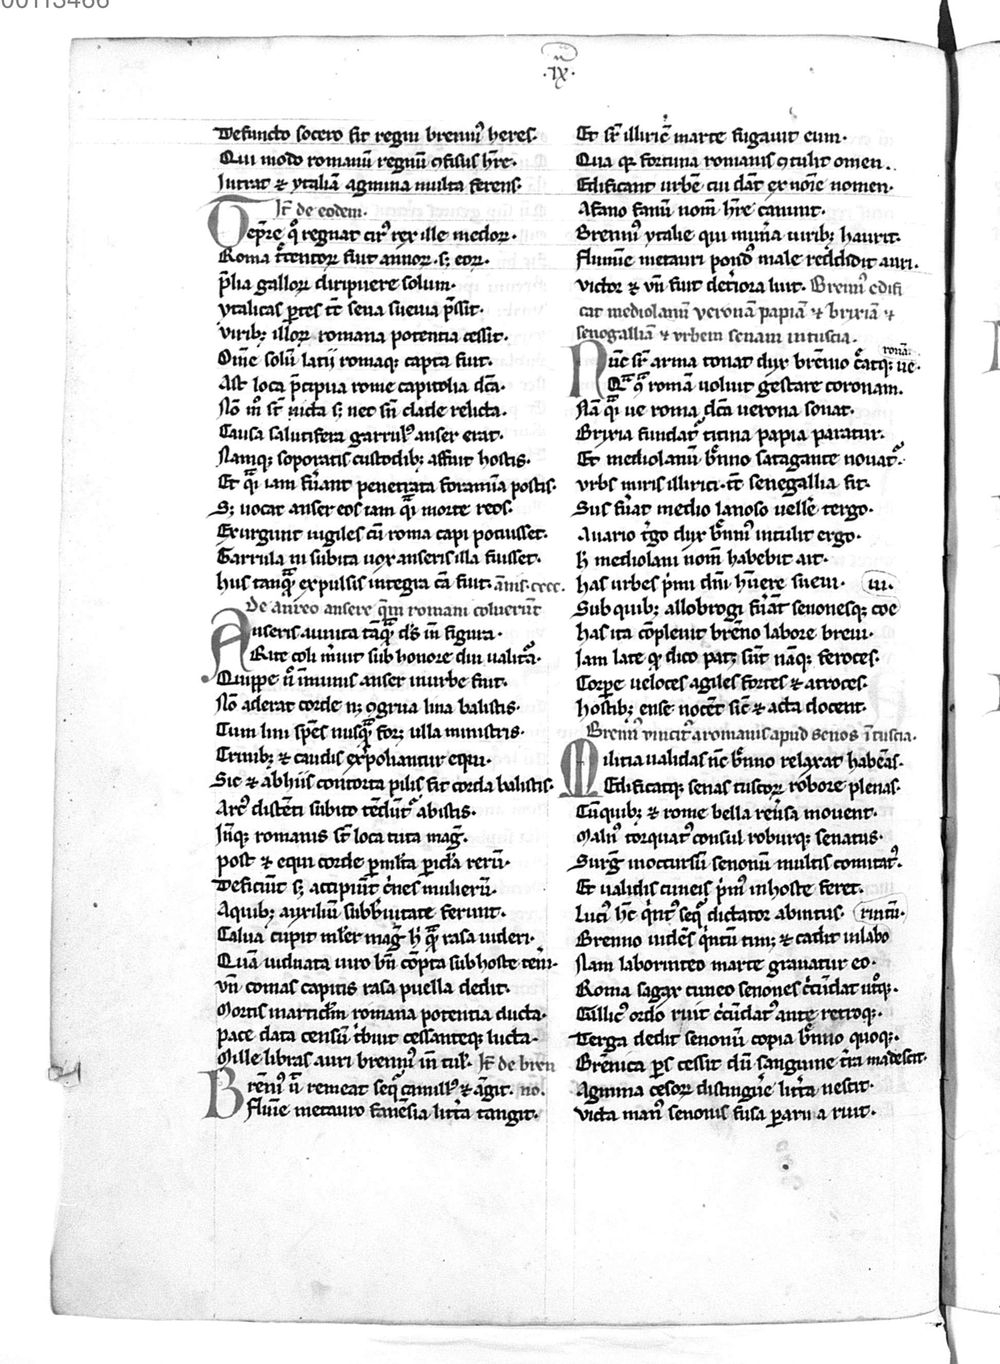 00113466
.ix.
Defuncto socero fit regni brennꝰ heres.
Qui modo romanū regnū ꝯfisus hr̄e.
Intrat & ytaliā agmina multa ferens.
It̄ de eodem.
Tēpr̄e qͦ regnat cirꝰ rex ille medoꝝ.
Roma t̄centoꝝ fuit annoꝝ. sꝫ eoꝝ.
p̄lia galloꝝ diripuere solum.
ytalicas ꝑtes tc̄ sena sueuia p̄ssit.
Viribꝫ illoꝝ romana potencia cessit.
Om̄e solū latij romaqꝫ capta fuit.
Ast loca p̄cipua rome capitolia dc̄a.
Nō m̄ st̄ uicta sꝫ nec sn̄ clade relicta.
Causa salutifera garrulꝰ anser erat.
Namqꝫ soporatis custodibꝫ affuit hostis.
Et qͣi iam fūant penetrata foramīa postis.
Sꝫ uocat anser eos iam qͣi morte reos.
Exurgunt uigiles cū roma capi potuisset.
Garrula ni subita uox anseris illa fuisset.
huꝰ tanqͣ expulsis integra cā fuit. ānis.cccc.
De aureo ansere qm̄ romani coluerūt
Anseris aurata tāqͣ dꝰ in̄ figura.
Rite coli m̄uit sub honore diu ualitͣa.
Quippe n̄ īmunis anser inurbe fuit.
Nō aderat corde nꝫ ꝯgrua lina balistis.
Cum lini spēs nusqͣ forꝫ ulla ministris.
Crinibꝫ & caudis exp̄oliantur equi.
Sic & abhiis contorta pilis fit corda balistis.
Arcꝰ distēti subito tēdūtꝰ abistis.
In̄qꝫ romanis st̄ loca tuta maḡ.
post & equi corde ꝑml̄ta ꝑicl̄a rerū.
Deficiūt sꝫ accipiūt c̄nes mulierū.
Aquibꝫ auxiliū subb̄uitate ferunt.
Calua cupit ml̄er maḡ h̄ qͣ rasa uideri.
Quā uiduata uiro bn̄ cōpta subhoste teni.
vn̄ comas capitis rasa puella dedit.
Mortis martidm̄ romana potentia ducta.
pace data censū t̄buit cessanteqꝫ lucta.
Mille libras auri brennꝰ in̄ tul̄. It̄ de bren
Brenꝰ ū remeat seqͥ camillꝰ & āgit. no.
Flum̄e metauro fanēsia litt̄a tangit.
Et st̄ illiric̄ marte fugauit eum.
Qua qꝫ fortuna romanis ꝯtulit omen.
Edificant urbē cui dāt ex noīe nomen.
Afano fanū nom̄ hr̄e canunt.
Brennꝰ ytalie qui mun̄a uiribꝫ haurit.
Flum̄e metauri pondꝰ male reddidit auri.
victor & vn̄ fuit det̄iora luit. Brenꝰ edifi
cat mediolanū veronā papiā & brixiā &
senogalliā & urbem senam intuscia.
Nūc st̄ arma tonat dux brēnio c̄atqꝫ ue
ronā.
Qͣ qͣ romā uoluit gestare coronam.
Nā qͣ ue roma dc̄a uerona sonat.
Brixia fundatꝰ ticina papia paratur.
Et mediolanū b̄nno satagante nouatꝰ.
vrbs miris illirici. tc̄ senegallia fit.
Sus fūat medio lanoso uellē tergo.
Auario t̄go dux b̄nnꝰ intulit ergo.
h̄ mediolani nom̄ habebit ait.
has urbes p̄mi dn̄i hn̄ere sueui. ui.
Sub quibꝫ allobrogi fūāt senonesqꝫ coe
has ita cōpleuit brēno labore breui.
Iam late qͦ dico patꝫ sūt nāqꝫ feroces.
Corꝑe ueloces agiles fortes & atroces.
hostibꝫ ense nocēt sic̄ & acta docent.
Brenꝰ vincitꝰ aromanis apud senos ī tuscia.
Milicia ualidas nc̄ b̄nno relaxat habēas.
Edificatqꝫ senas tuscoꝝ robore plenas.
Cū quibꝫ & rome bella reūsa mouent.
Maliꝰ torquatꝰ consul roburqꝫ senatus.
Surḡ inoccursū senonū multis comitatꝰ.
Et ualidis cuneis p̄mꝰ inhoste feret.
Lucꝰ hc̄ qn̄tꝰ seqͥ dictator abintus. rintū.
Brenno uidēs qn̄tū timꝫ & cadit inlabo
Nam laborinteo marte grauatur eo.
Roma sagax cuneo senones c̄cūdat utͦqꝫ.
Gallicꝰ ordo ruit c̄cūdatꝰ ante retroqꝫ.
Terga dedit senonū copia b̄nno quoqꝫ.
Brēnica ꝑs cessit dū sanguine t̄ra madescit.
Agmina cesoꝝ distingūe litt̄a nescit.
victa manꝰ senonis fusa ꝑarua ruit.